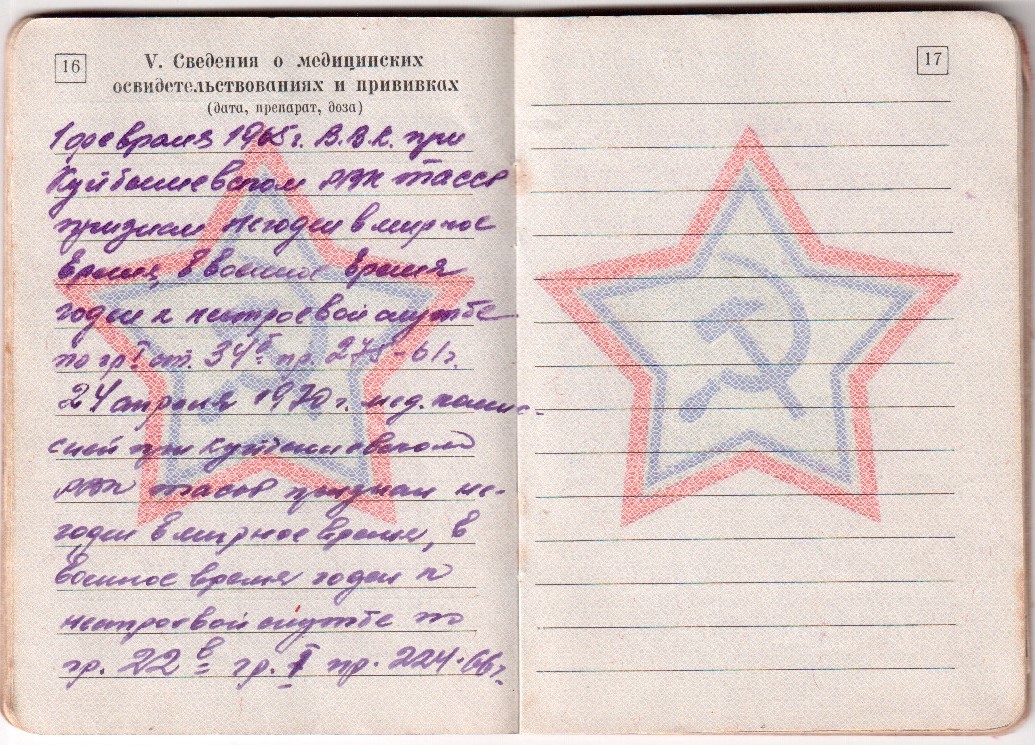 16
V. Сведения о медицинских
освидетельствованиях и прививках
(дата, препарат, доза)
1 февраля 1965 г. В.В.К. при
Куйбышевском РВК ТАССР
признан негоден в мирное
время, в военное время
годен к нестроевой службе
по гр I ст. 34 б пр. 275-61 г.
24 апреля 1970 г. мед. комис-
сией при Куйбышевском
РВК ТАССР признан не-
годен в мирное время, в
военное время годен к
нестроевой службе по
гр. 22 в гр. I пр. 224-66 г.
17